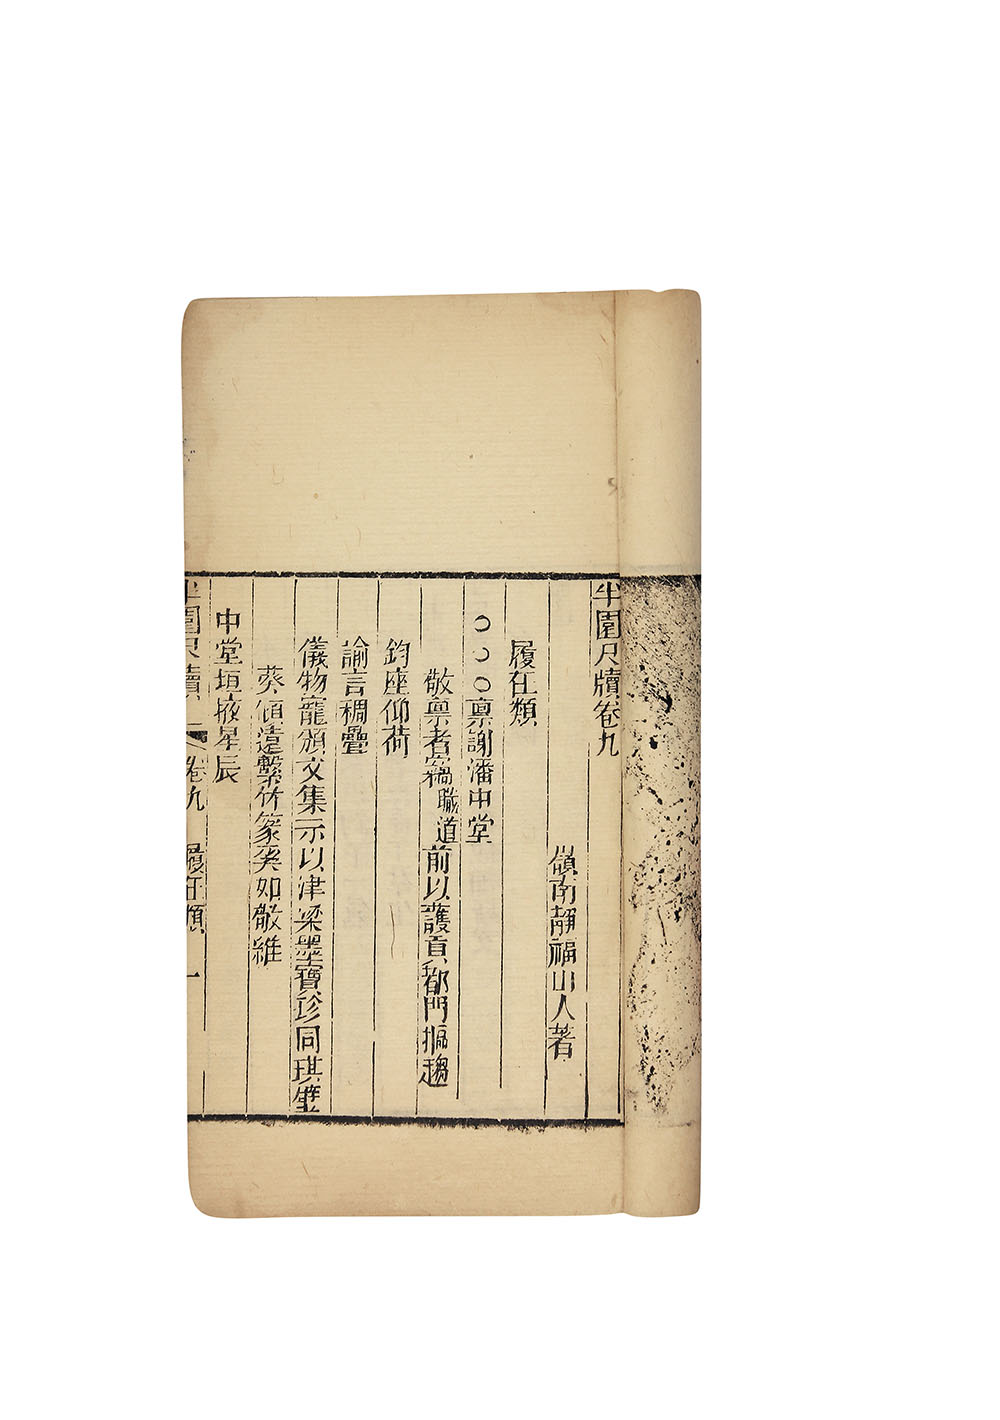 半園尺牘卷九
嶺南靜福山人著
履任類
○○○稟謝潘中堂
敬稟者竊職道前以護貢都門摳趨
鈞座仰荷
諭言稠疊
儀物寵頒文集示以津梁墨寶珍同琪璧
葵傾遠繫竹篆奚如敬維
中堂垣掖星辰
半園尺牘 卷九 履任類 一